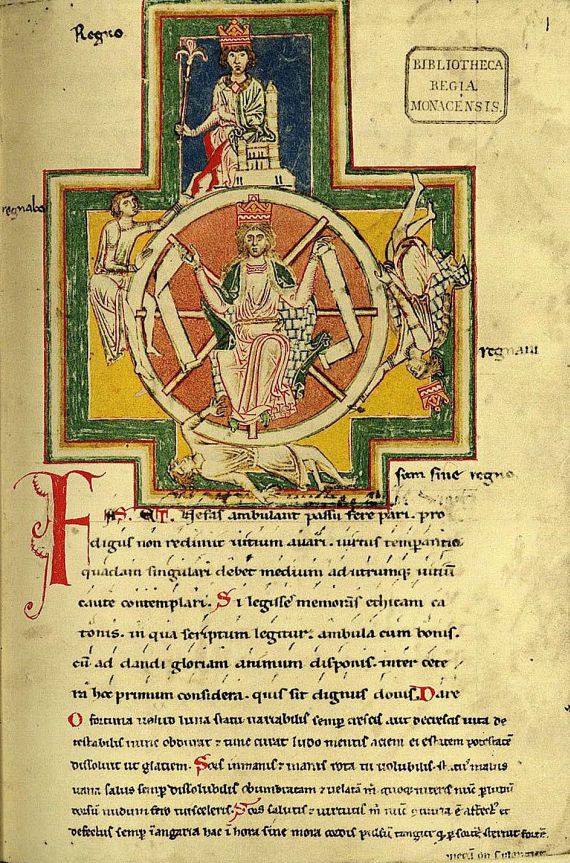 Regno
BIBLIOTHECA
REGIA
MONACENSIS.
regnabo
regnaui
sum sine regno
FAS. ET. Nefas ambulant passu fere pari. pro
digus non redimit uitium auari. uirtus temperantia
quadam singulari debet medium ad utrumque uitium
caute contemplari. Si legisse memoras ethicam ca
tonis. in qua scriptum legitur. ambula cum bonis.
cū ad dandi gloriam animum disponis. inter cete
ra hoc primum considera. quis sit dignus donis. Dare
O fortuna uelud luna statu uariabilis semp crescis aut decrescis uita de
testabilis nunc obdurat & tunc curat ludo mentis aciem egestatem potestatē
dissoluit ut glatiem. Sors inmanis & inanis rota tu uolubilis status malus
uana salus semp dissolubilis obumbratam & uelatam
Sors salutis & uirtutis
defectus semp ī angaria hac ī hora sine mora